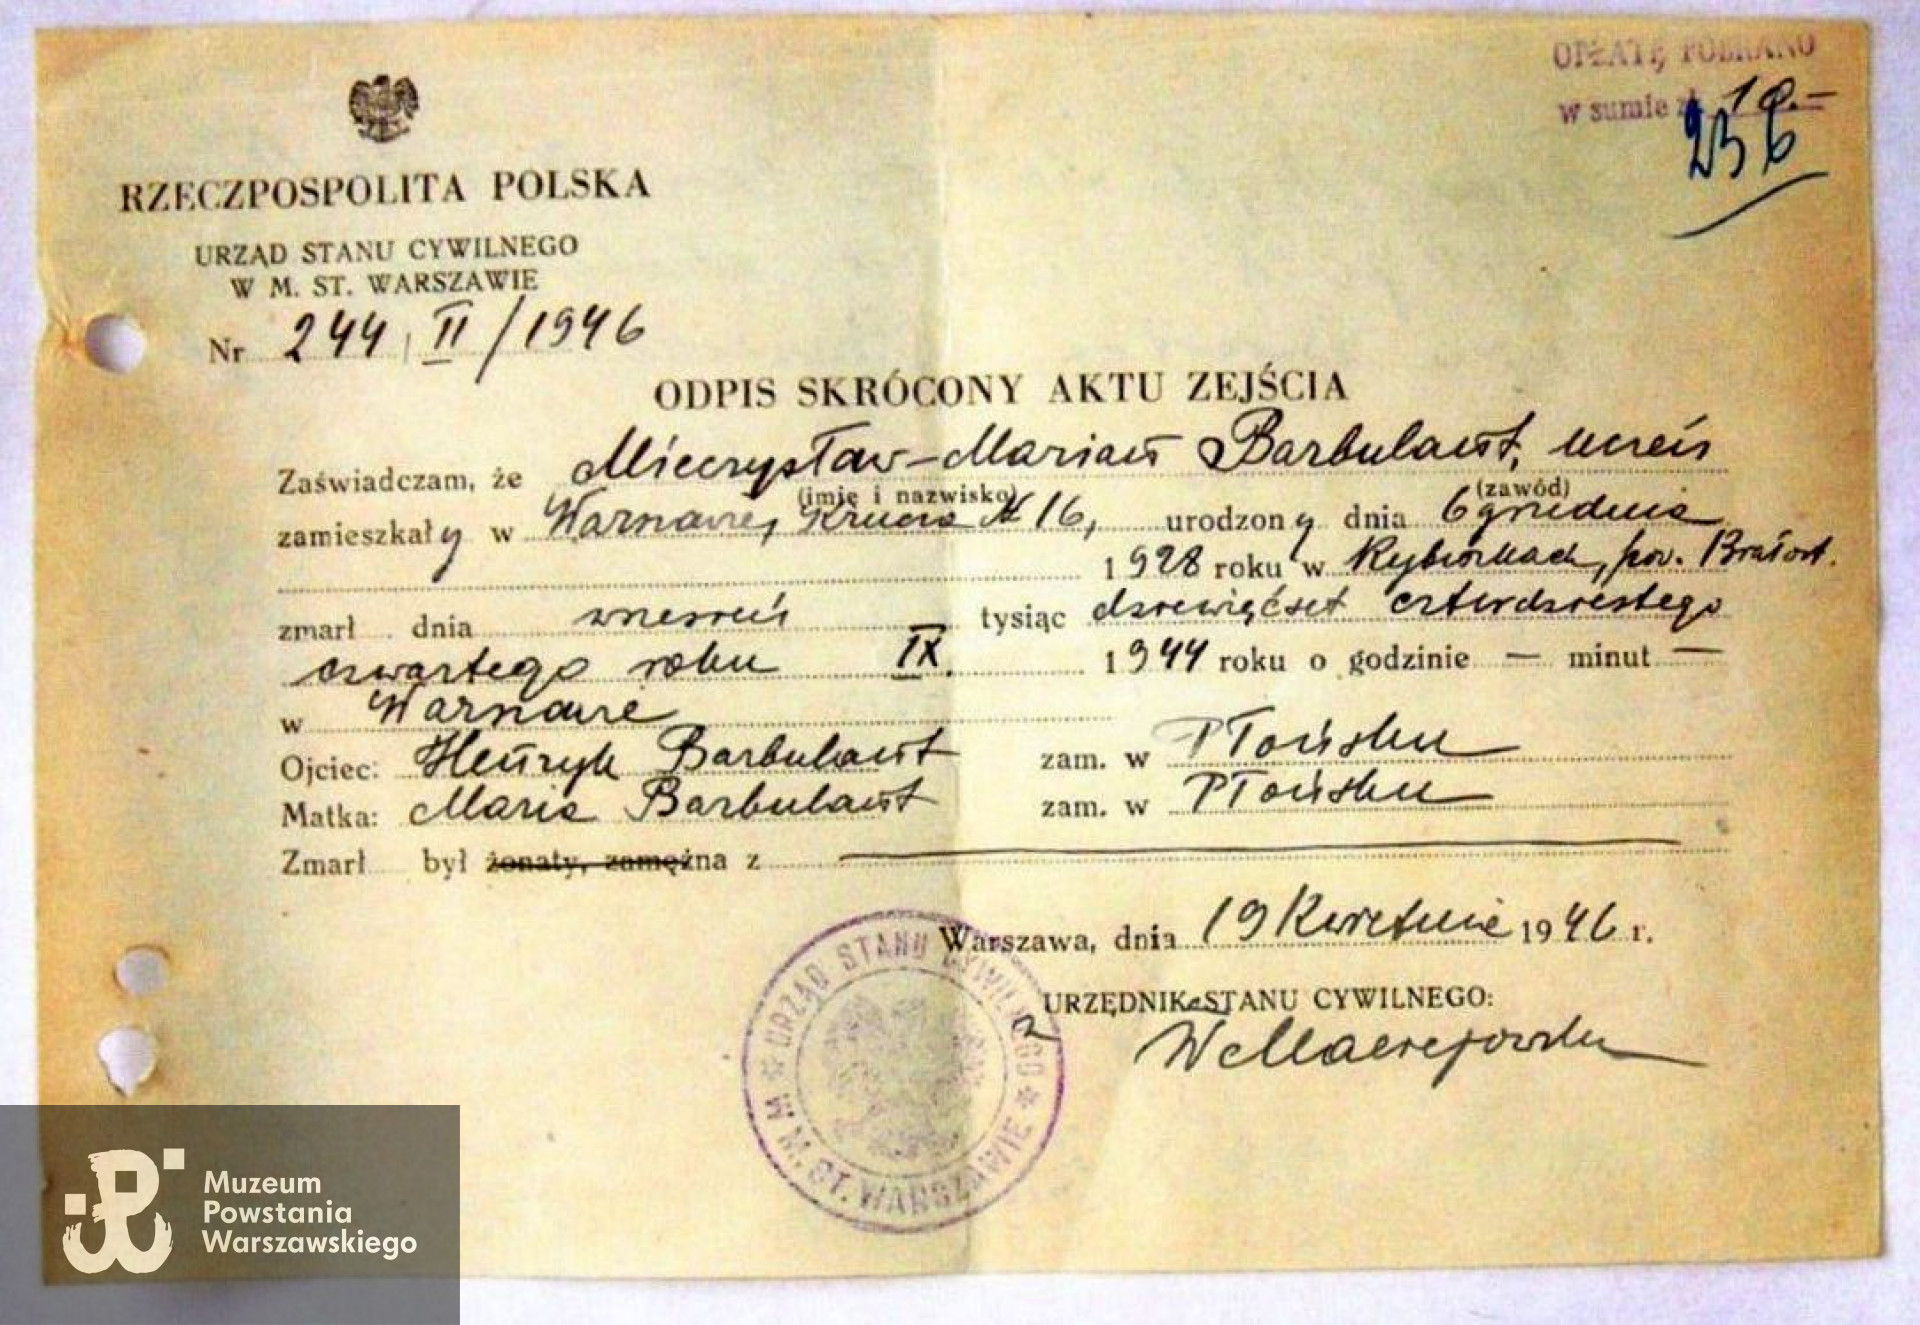 OPŁATĘ POBRANO
w sumie zł. 10.-
236
RZECZPOSPOLITA POLSKA
URZĄD STANU CYWILNEGO
W M. ST. WARSZAWIE
Nr 244, II/1946
ODPIS SKRÓCONY AKTU ZEJŚCIA
Zaświadczam, że Mieczysław-Marian Barbulant, uczeń
(imię i nazwisko) (zawód)
zamieszkały w Warszawie, Krucza № 16, urodzony dnia 6 grudnia
1928 roku w pow. Białost.
zmarł dnia wrzesień tysiąc dziewięćset czterdziestego
czwartego roku IX. 1944 roku o godzinie — minut —
w Warszawie
Ojciec: Henryk Barbulant zam. w Płońsku
Matka: Maria Barbulant zam. w Płońsku
Zmarł był żonaty, zamężna z
Warszawa, dnia 19 Kwietnia 1946 r.
URZĘDNIK STANU CYWILNEGO:
URZĄD STANU CYWILNEGO * W M. ST. WARSZAWIE *
Muzeum
Powstania
Warszawskiego